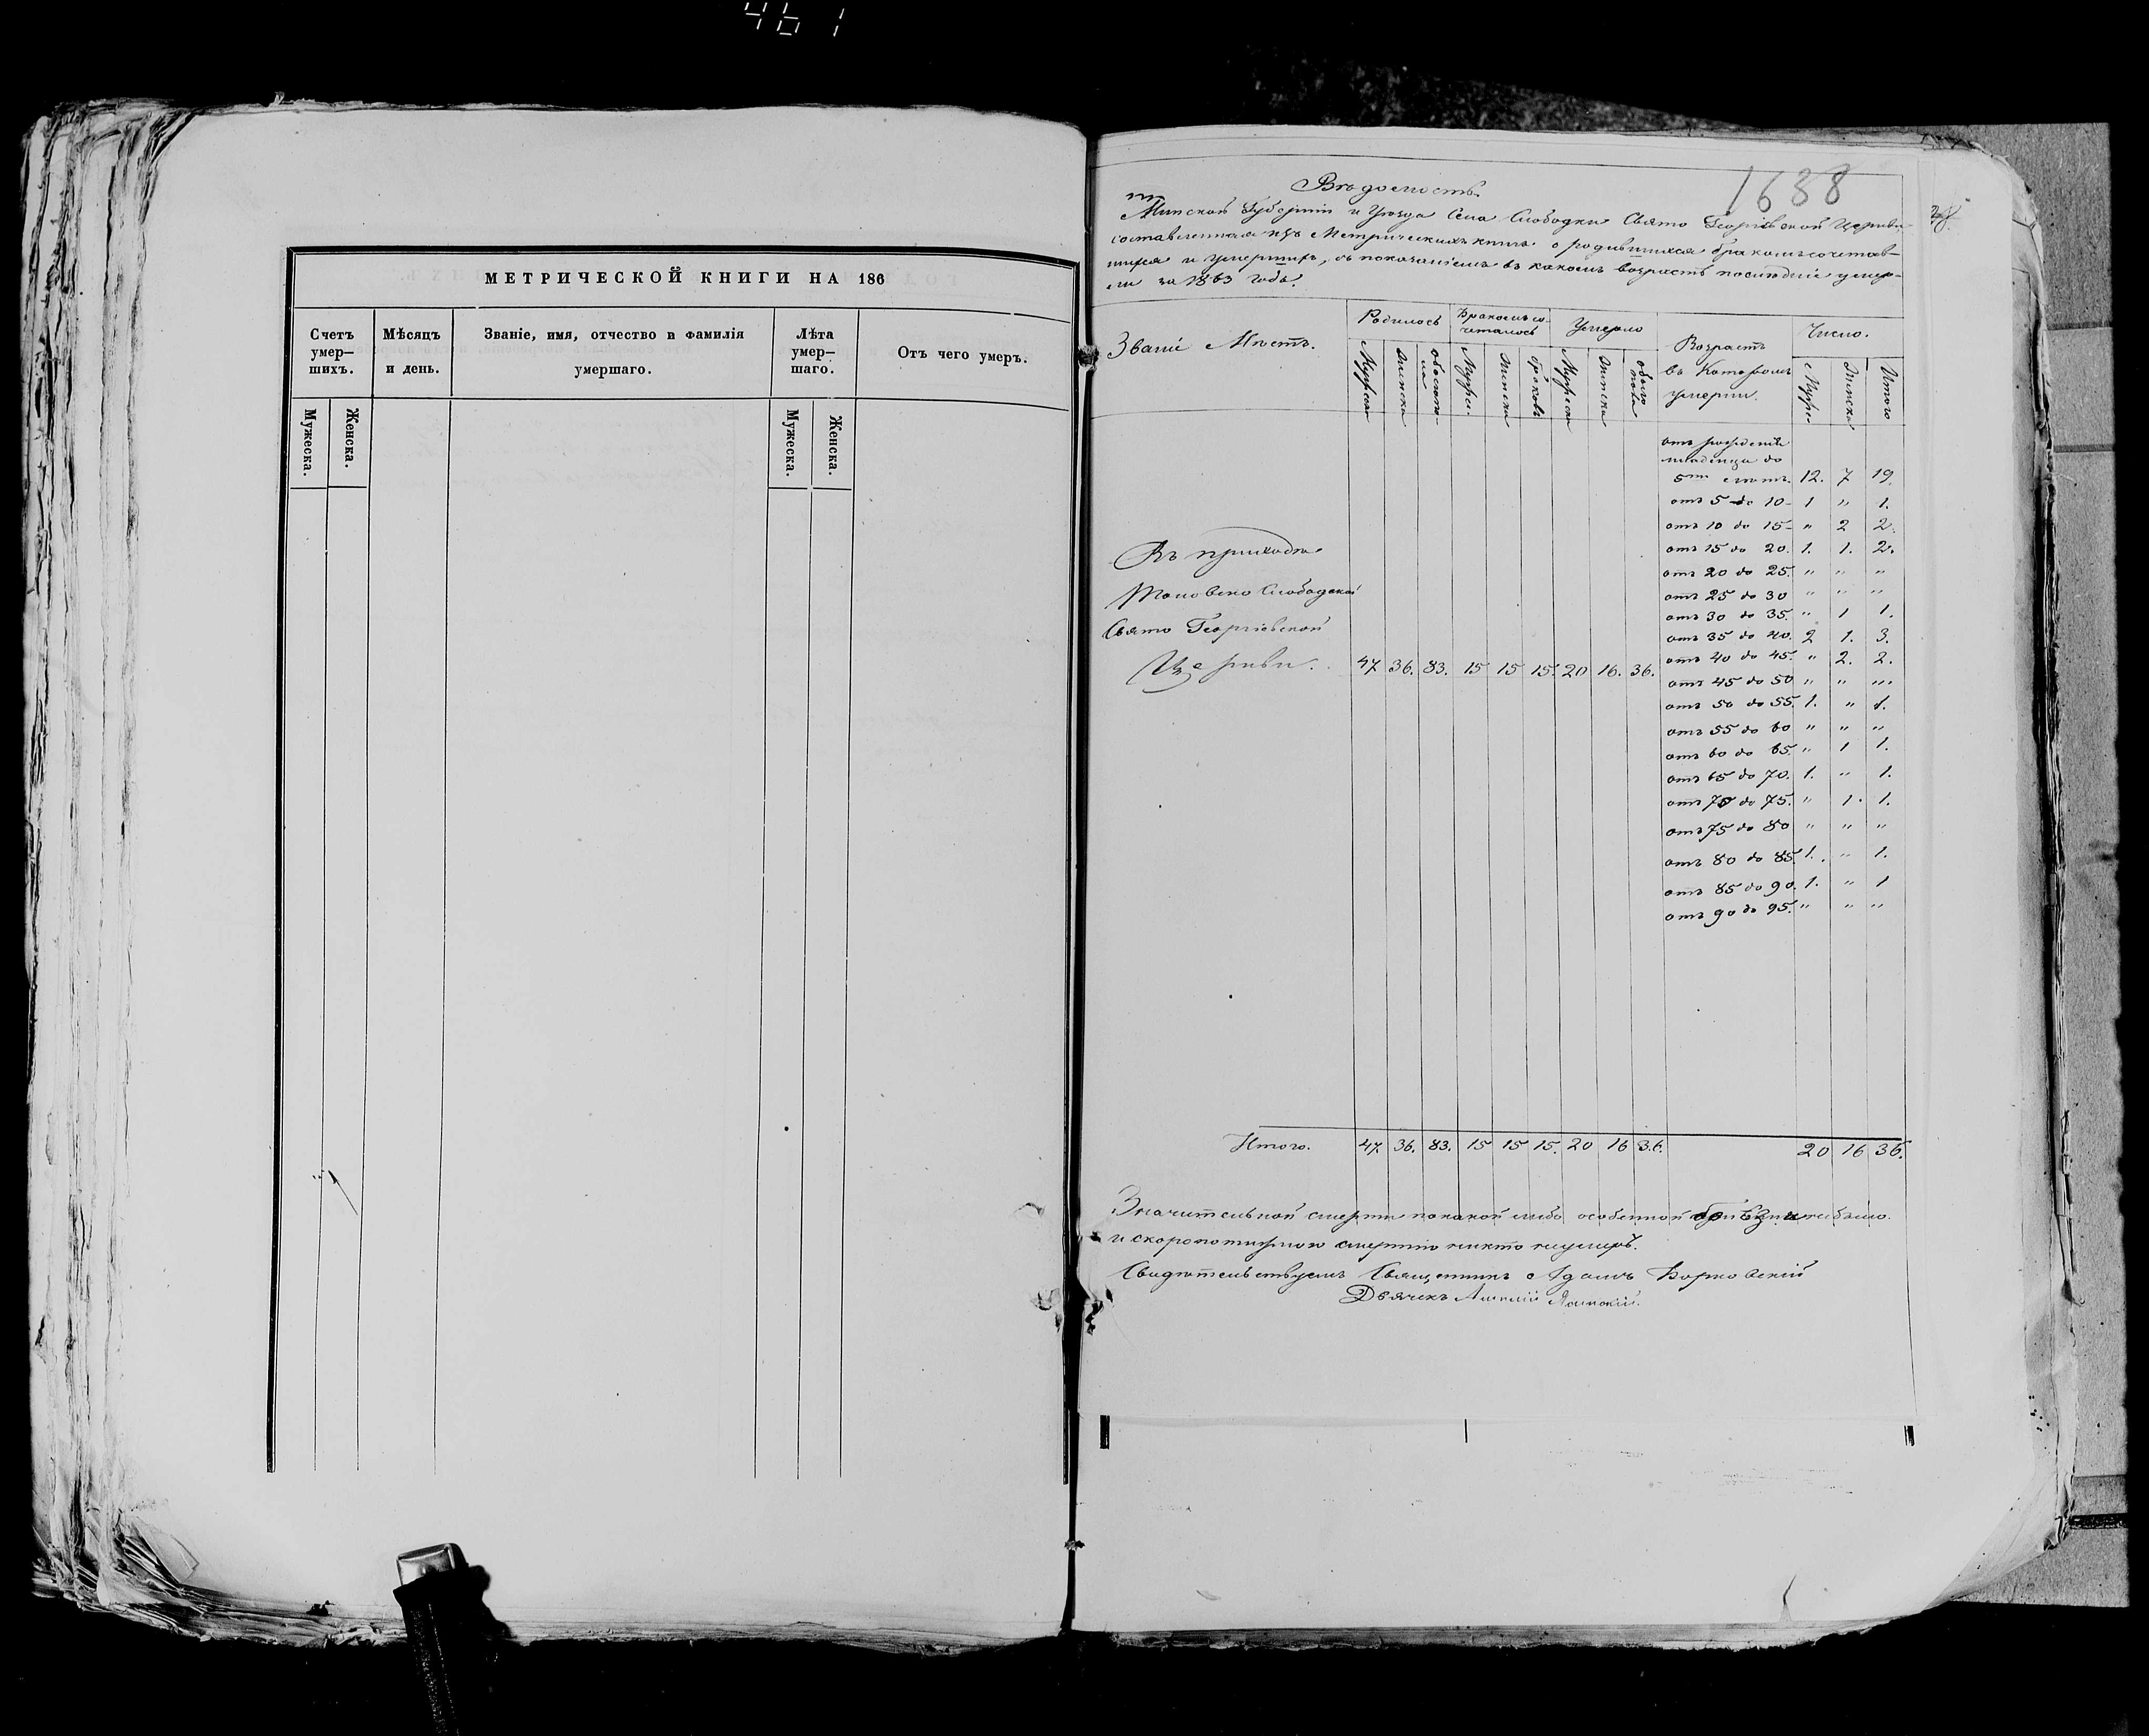 461
МЕТРИЧЕСКОЙ КНИГИ НА 186
Счетъ умер—шихъ.
Мѣсяцъ и день.
Званіе, имя, отчество и фамилія умершаго.
Лѣта умер—шаго.
Отъ чего умеръ.
Мужеска.
Женска.
Мужеска.
Женска.
1638
Вѣдомость
Минской Губерніи и Уѣзда Села Слободки Свято Георгіевской Церкви
составленная изъ Метрическихъ книгъ о родившихся бракомъ сочетав-
шихся и умершихъ, съ показаніемъ въ какомъ возрастѣ послѣдніе умер-
ли за 1863 годъ.
Званіе Мѣстъ.
Родилось
Бракомъ со-четалось
Умерло
Возрастъ въ Которомъ умерли.
Число.
Мужеска
Женска
обоего по-ла
Мужес
Женска
браковъ
Мужеска
Женска
обоего пола
Муже
Женска
Итого
отъ рожденія
младенца до
5ти лѣтъ. 12. 7 19.
отъ 5 до 10 1 " 1.
отъ 10 до 15 " 2 2.
отъ 15 до 20. 1. 1. 2.
отъ 20 до 25. " " "
отъ 25 до 30 " " "
отъ 30 до 35. " 1 1.
отъ 35 до 40. 2 1. 3.
отъ 40 до 45. " 2. 2.
отъ 45 до 50 " " "
отъ 50 до 55. 1. " 1.
отъ 55 до 60 " " "
отъ 60 до 65. " 1 1.
отъ 65 до 70. 1. " 1.
отъ 70 до 75. " 1. 1.
отъ 75 до 80 " " "
отъ 80 до 85. 1. " 1.
отъ 85 до 90. 1. " 1
отъ 90 до 95. " " "
Въ приходѣ
Слободской
Свято Георгіевской
Церкви. 47 36. 83. 15 15 15. 20 16. 36.
Итого. 47. 36. 83. 15 15 15. 20 16 36. 20 16 36.
Значительной смерти по какой либо особенной не было
и скоропостижною смертію никто не умеръ.
Свидѣтельствуемъ Священникъ Адамъ Борковскій
Дьячекъ